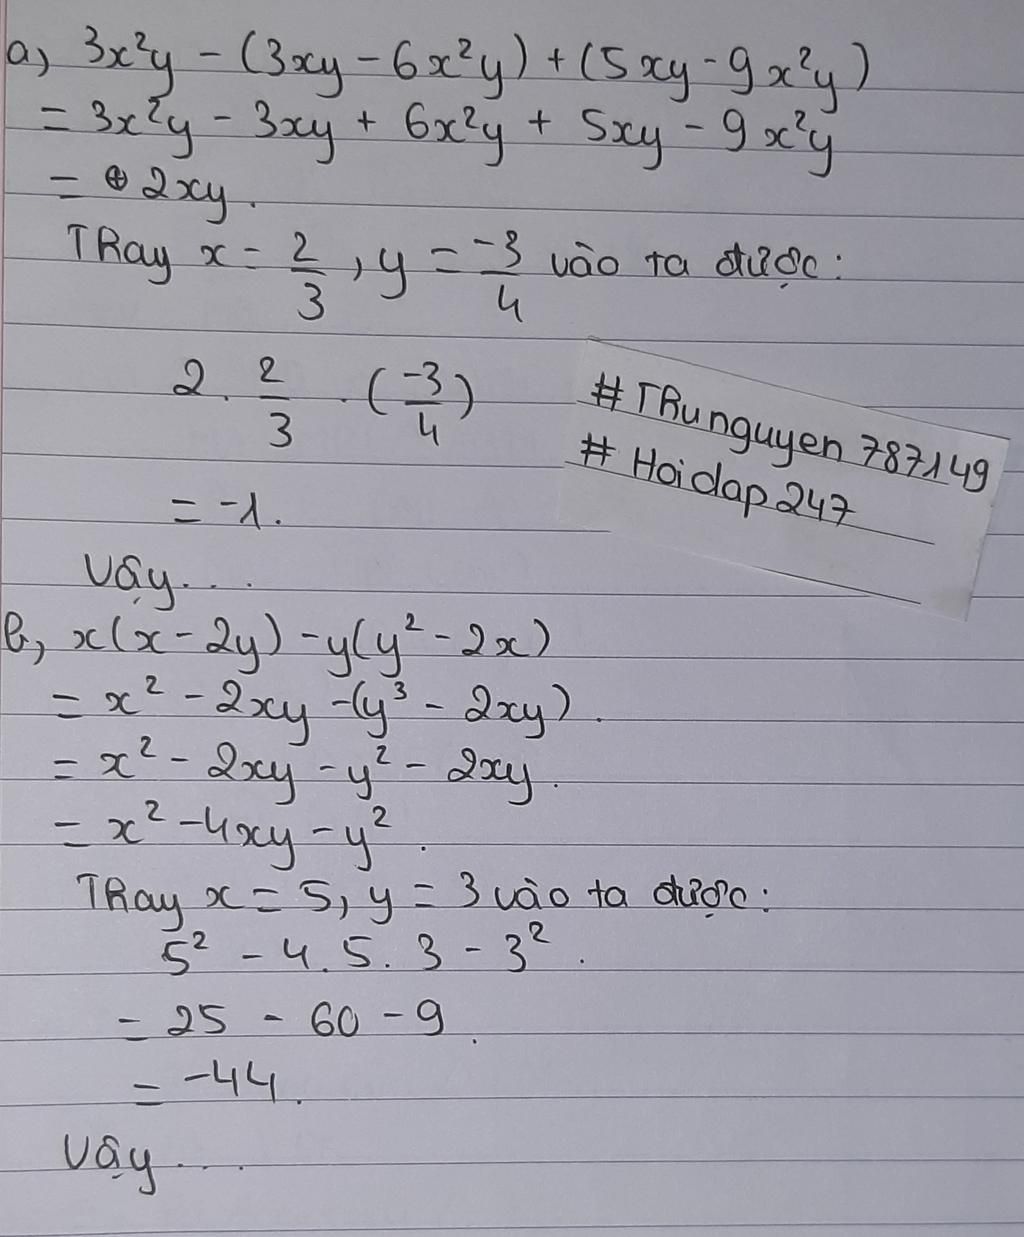 a, 3x²y - (3xy - 6x²y) + (5xy - 9x²y)
= 3x²y - 3xy + 6x²y + 5xy - 9x²y
= ⊕ 2xy.
Thay x = 2/3, y = -3/4 vào ta được:
2 . 2/3 . (-3/4)
= -1.
Vậy....
# Thunguyen 787149
# Hoidap247
b, x(x - 2y) - y(y² - 2x)
= x² - 2xy - (y³ - 2xy).
= x² - 2xy - y² - 2xy.
= x² - 4xy - y².
Thay x = 5, y = 3 vào ta được:
5² - 4. 5. 3 - 3².
= 25 - 60 - 9.
= -44.
Vậy....